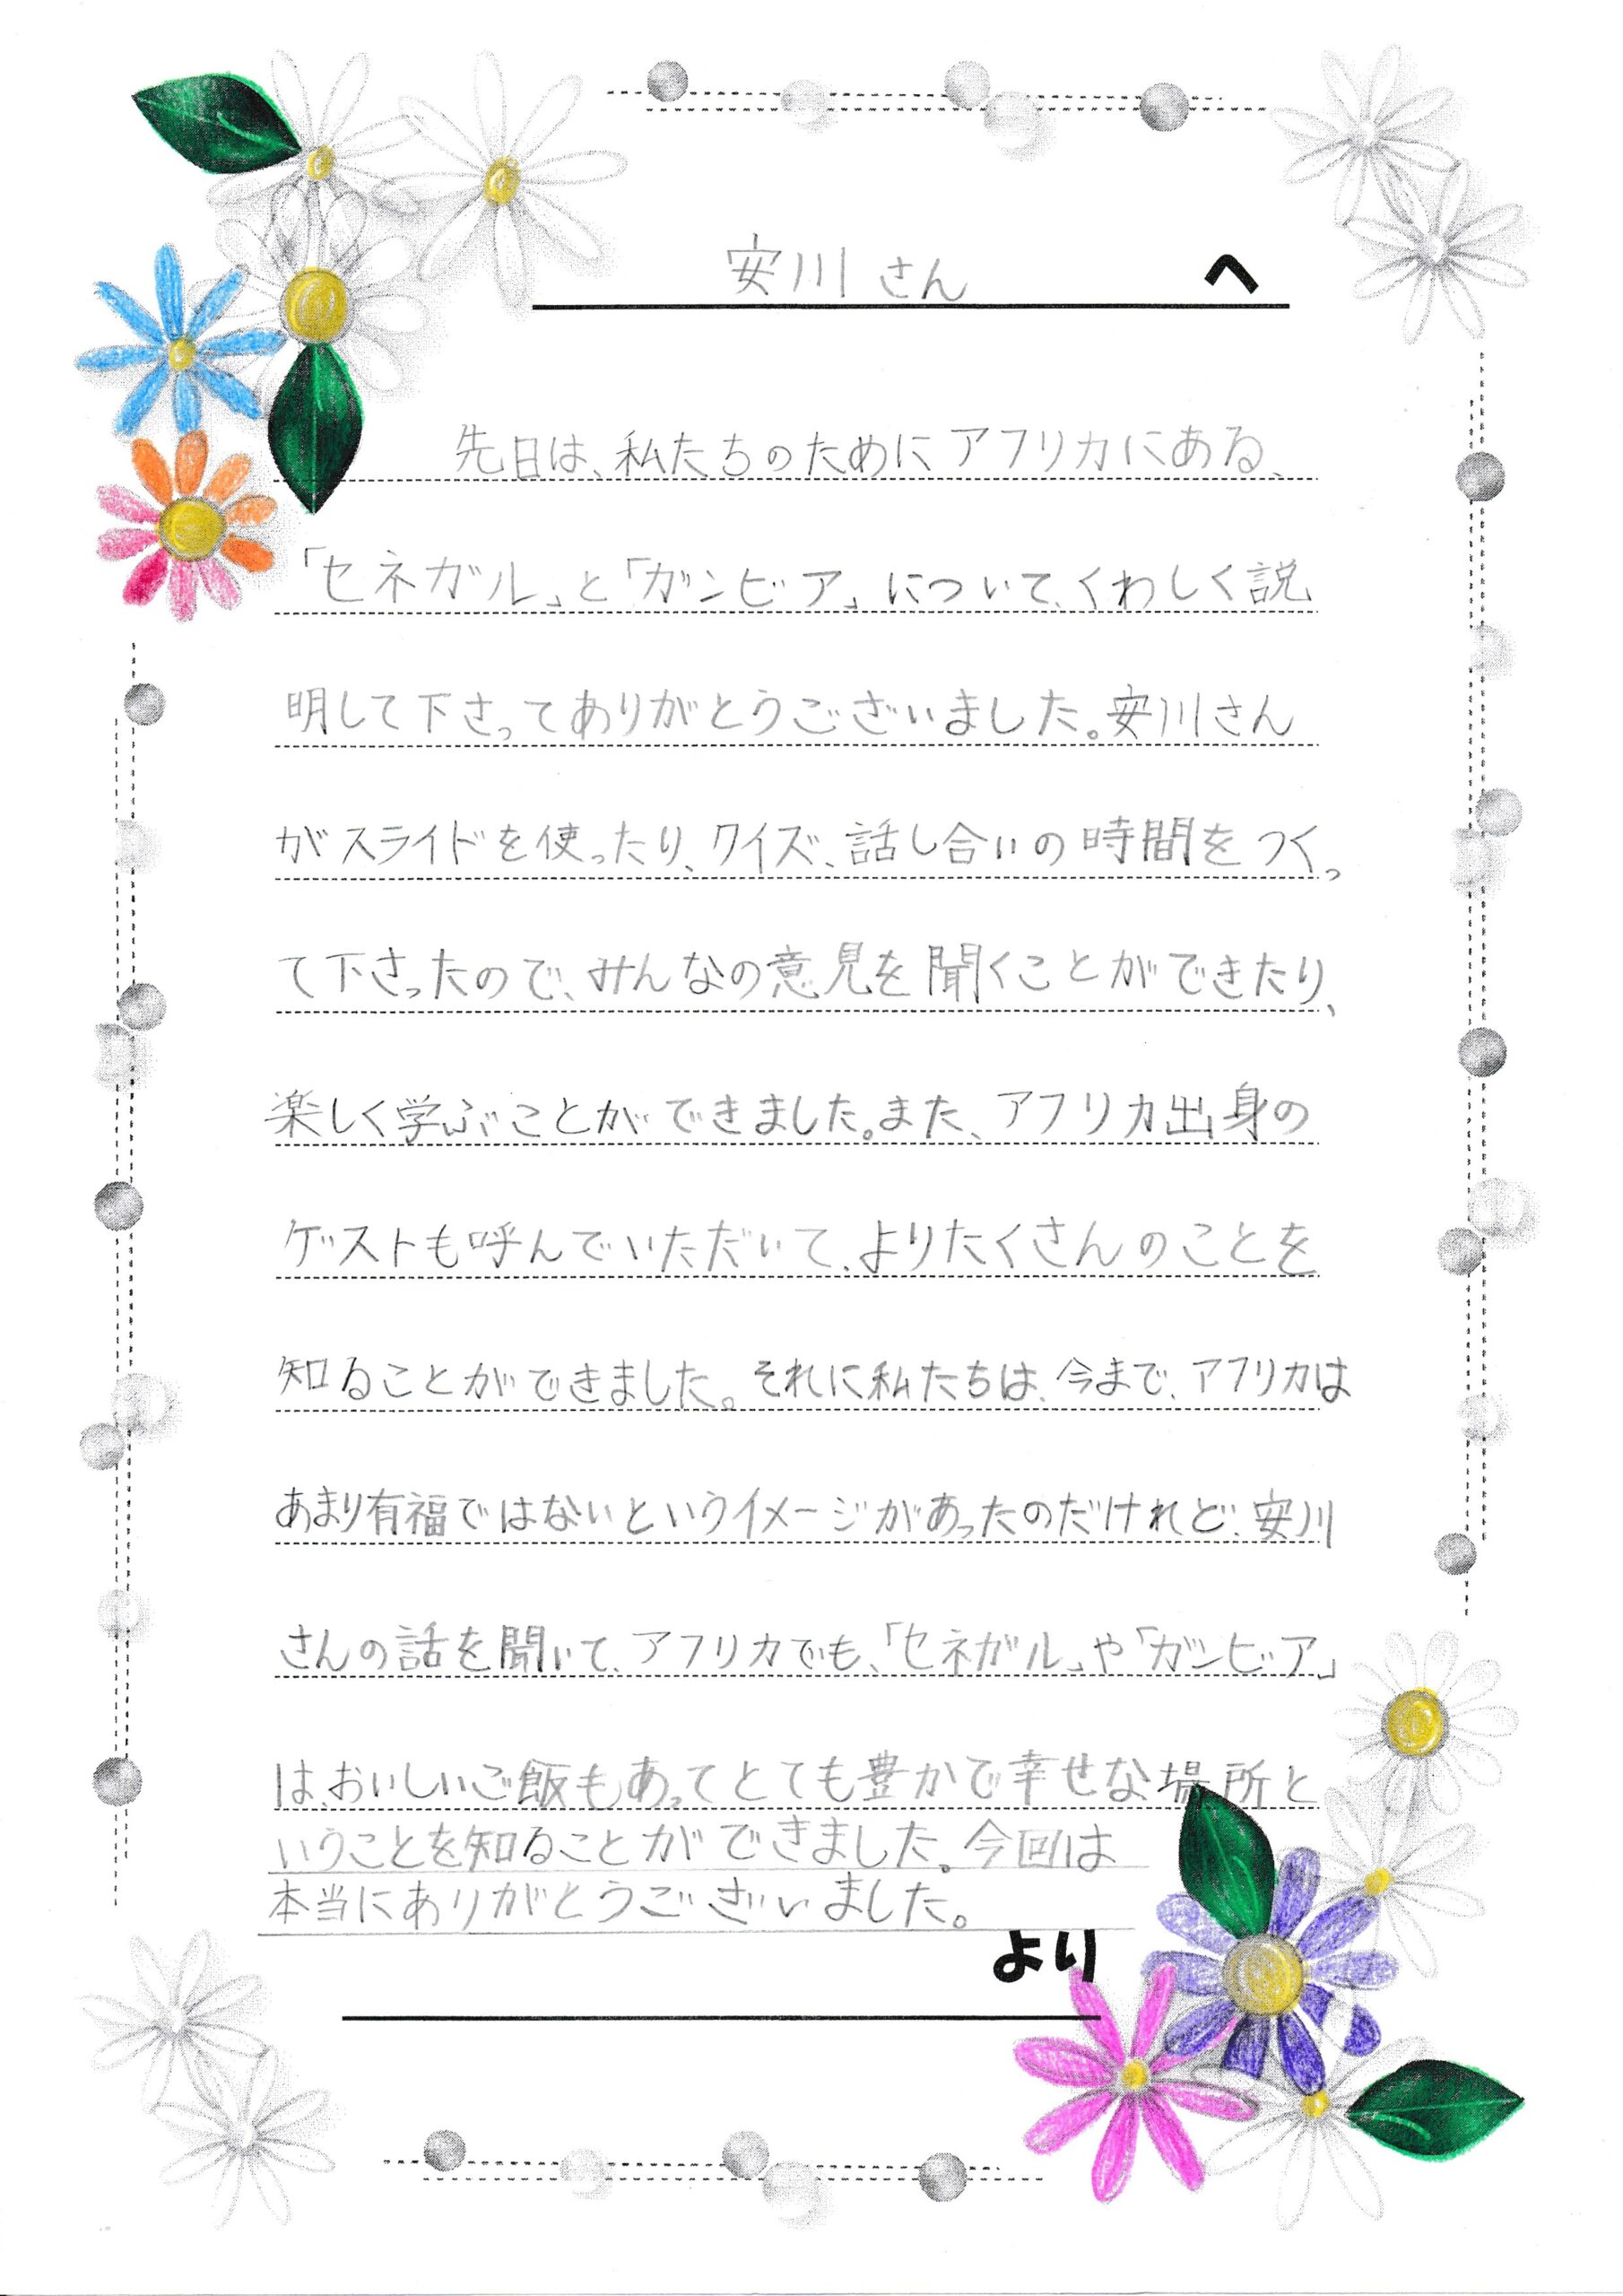 安川さん へ
先日は、私たちのためにアフリカにある、
「セネガル」と「ガンビア」について、くわしく説
明して下さってありがとうございました。安川さん
がスライドを使ったり、クイズ、話し合いの時間をつくっ
て下さったので、みんなの意見を聞くことができたり、
楽しく学ぶことができました。また、アフリカ出身の
ゲストも呼んでいただいて、よりたくさんのことを
知ることができました。それに私たちは、今まで、アフリカは
あまり有福ではないというイメージがあったのだけれど、安川
さんの話を聞いて、アフリカでも、「セネガル」や「ガンビア」
は、おいしいご飯もあってとても豊かで幸せな場所と
いうことを知ることができました。今回は
本当にありがとうございました。
より